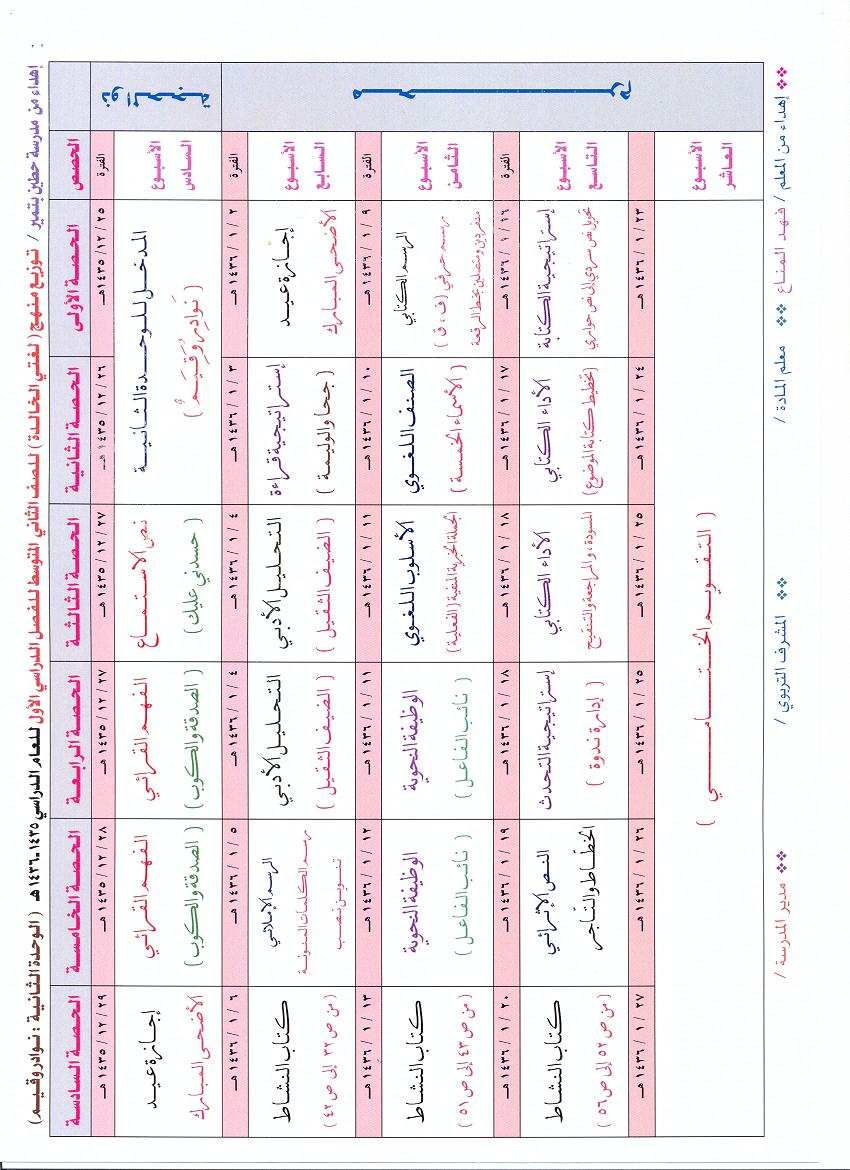 إهداء من مدرسة حطين بتمير / توزيع منهج ( لغتي الخالدة ) للصف الثاني المتوسط للفصل الدراسي الأول للعام الدراسي ١٤٣٥-١٤٣٦ هـ ( الوحدة الثانية : نوادر وقيم )
الحصص
الحصة الأولى
الحصة الثانية
الحصة الثالثة
الحصة الرابعة
الحصة الخامسة
الحصة السادسة
ذو الحجة
الفترة
٢٥ / ١٢ / ١٤٣٥ هـ
٢٦ / ١٢ / ١٤٣٥ هـ
٢٧ / ١٢ / ١٤٣٥ هـ
٢٧ / ١٢ / ١٤٣٥ هـ
٢٨ / ١٢ / ١٤٣٥ هـ
٢٩ / ١٢ / ١٤٣٥ هـ
الأسبوع
السادس
المدخل للوحدة الثانية
( نَوادِر وَقِيَمٌ )
نص الاستماع
( حسدني عليك )
الفهم القرائي
( الصدفة والكوب )
الفهم القرائي
( الصدفة والكوب )
إجازة عيد
الأضحى المبارك
محرم
الفترة
٢ / ١ / ١٤٣٦ هـ
٣ / ١ / ١٤٣٦ هـ
٤ / ١ / ١٤٣٦ هـ
٤ / ١ / ١٤٣٦ هـ
٥ / ١ / ١٤٣٦ هـ
٦ / ١ / ١٤٣٦ هـ
الأسبوع
السابع
إجازة عيد
الأضحى المبارك
إستراتيجية قراءة
( جحا والوليمة )
التحليل الأدبي
( الضيف الثقيل )
التحليل الأدبي
( الضيف الثقيل )
الرسم الإملائي
رسم الكلمات المنونة
تنوين نصب
كتاب النشاط
( من ص ٣٢ إلى ص ٤٢ )
الفترة
٩ / ١ / ١٤٣٦ هـ
١٠ / ١ / ١٤٣٦ هـ
١١ / ١ / ١٤٣٦ هـ
١١ / ١ / ١٤٣٦ هـ
١٢ / ١ / ١٤٣٦ هـ
١٣ / ١ / ١٤٣٦ هـ
الأسبوع
الثامن
الرسم الكتابي
رسم حرفي ( ف ، ق )
منفردين ومتصلين بخط الرقعة
الصنف اللغوي
( الأسماء الخمسة )
الأسلوب اللغوي
الجملة الخبرية المنفية (الفعلية)
الوظيفة النحوية
( نائب الفاعل )
الوظيفة النحوية
( نائب الفاعل )
كتاب النشاط
( من ص ٤٣ إلى ص ٥١ )
الفترة
١٦ / ١ / ١٤٣٦ هـ
١٧ / ١ / ١٤٣٦ هـ
١٨ / ١ / ١٤٣٦ هـ
١٨ / ١ / ١٤٣٦ هـ
١٩ / ١ / ١٤٣٦ هـ
٢٠ / ١ / ١٤٣٦ هـ
الأسبوع
التاسع
إستراتيجية الكتابة
تحويل نص سردي إلى نص حواري
الأداء الكتابي
(تخطيط كتابة الموضوع)
الأداء الكتابي
المسودة، والمراجعة والتنقيح
إستراتيجية التحدث
( إدارة ندوة )
النص الإثرائي
الخطّاط والتّاجر
كتاب النشاط
( من ص ٥٢ إلى ص ٥٦ )
٢٣ / ١ / ١٤٣٦ هـ
٢٤ / ١ / ١٤٣٦ هـ
٢٥ / ١ / ١٤٣٦ هـ
٢٥ / ١ / ١٤٣٦ هـ
٢٦ / ١ / ١٤٣٦ هـ
٢٧ / ١ / ١٤٣٦ هـ
الأسبوع
العاشر
( التقويم الختامي )
❖❖ إهداء من المعلم / فهد المناع ❖❖ معلم المادة / ❖❖ المشرف التربوي / ❖❖ مدير المدرسة /